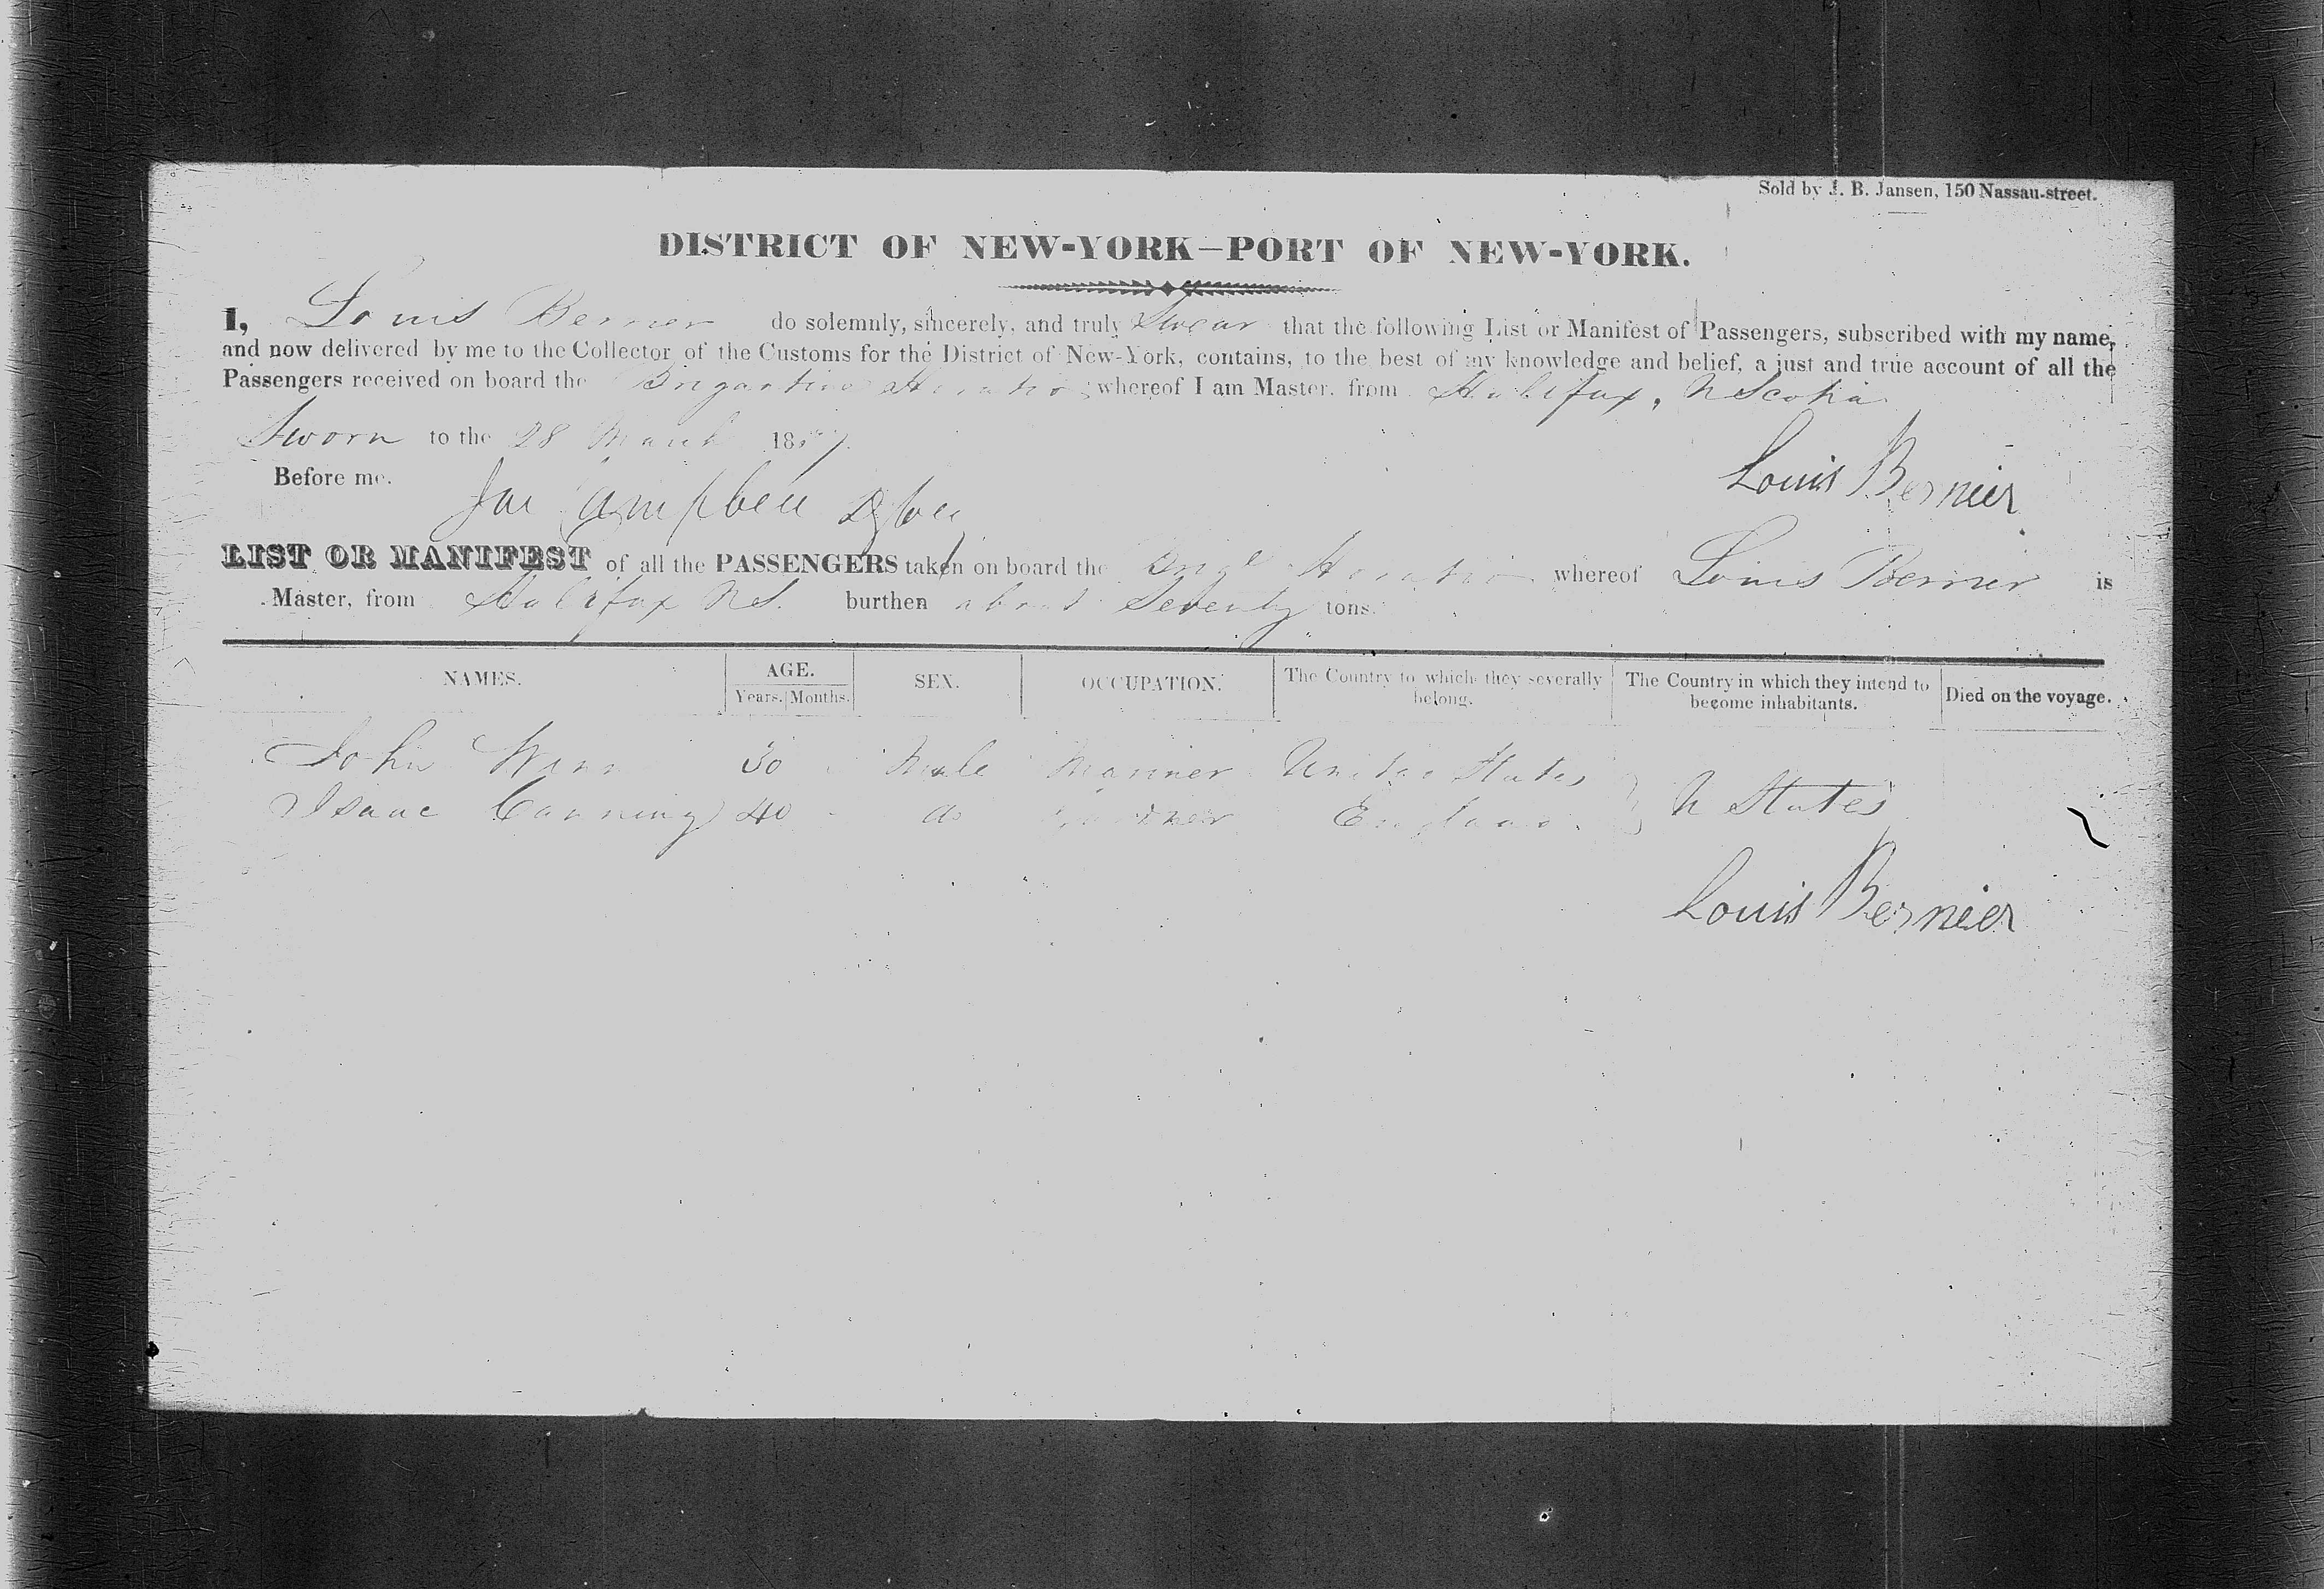 Sold by J. B. Jansen, 150 Nassau-street.
DISTRICT OF NEW-YORK—PORT OF NEW-YORK.
I, Louis Bernier do solemnly, sincerely, and truly Swear that the following List or Manifest of Passengers, subscribed with my name,
and now delivered by me to the Collector of the Customs for the District of New-York, contains, to the best of my knowledge and belief, a just and true account of all the
Passengers received on board the Brigantine Horatio whereof I am Master, from Halifax, N Scotia
Sworn to the 28 March 18
Before me.
Louis Bernier
Campbell
LIST OR MANIFEST of all the PASSENGERS taken on board the Horatio whereof Louis Bernier is
Master, from Halifax NS. burthen about Seventy tons.
NAMES. AGE. SEX. OCCUPATION. The Country to which they severally belong. The Country in which they intend to become inhabitants. Died on the voyage.
Years. Months.
John 30 Male Mariner United States
Isaac Canning 40 do England U States
Louis Bernier